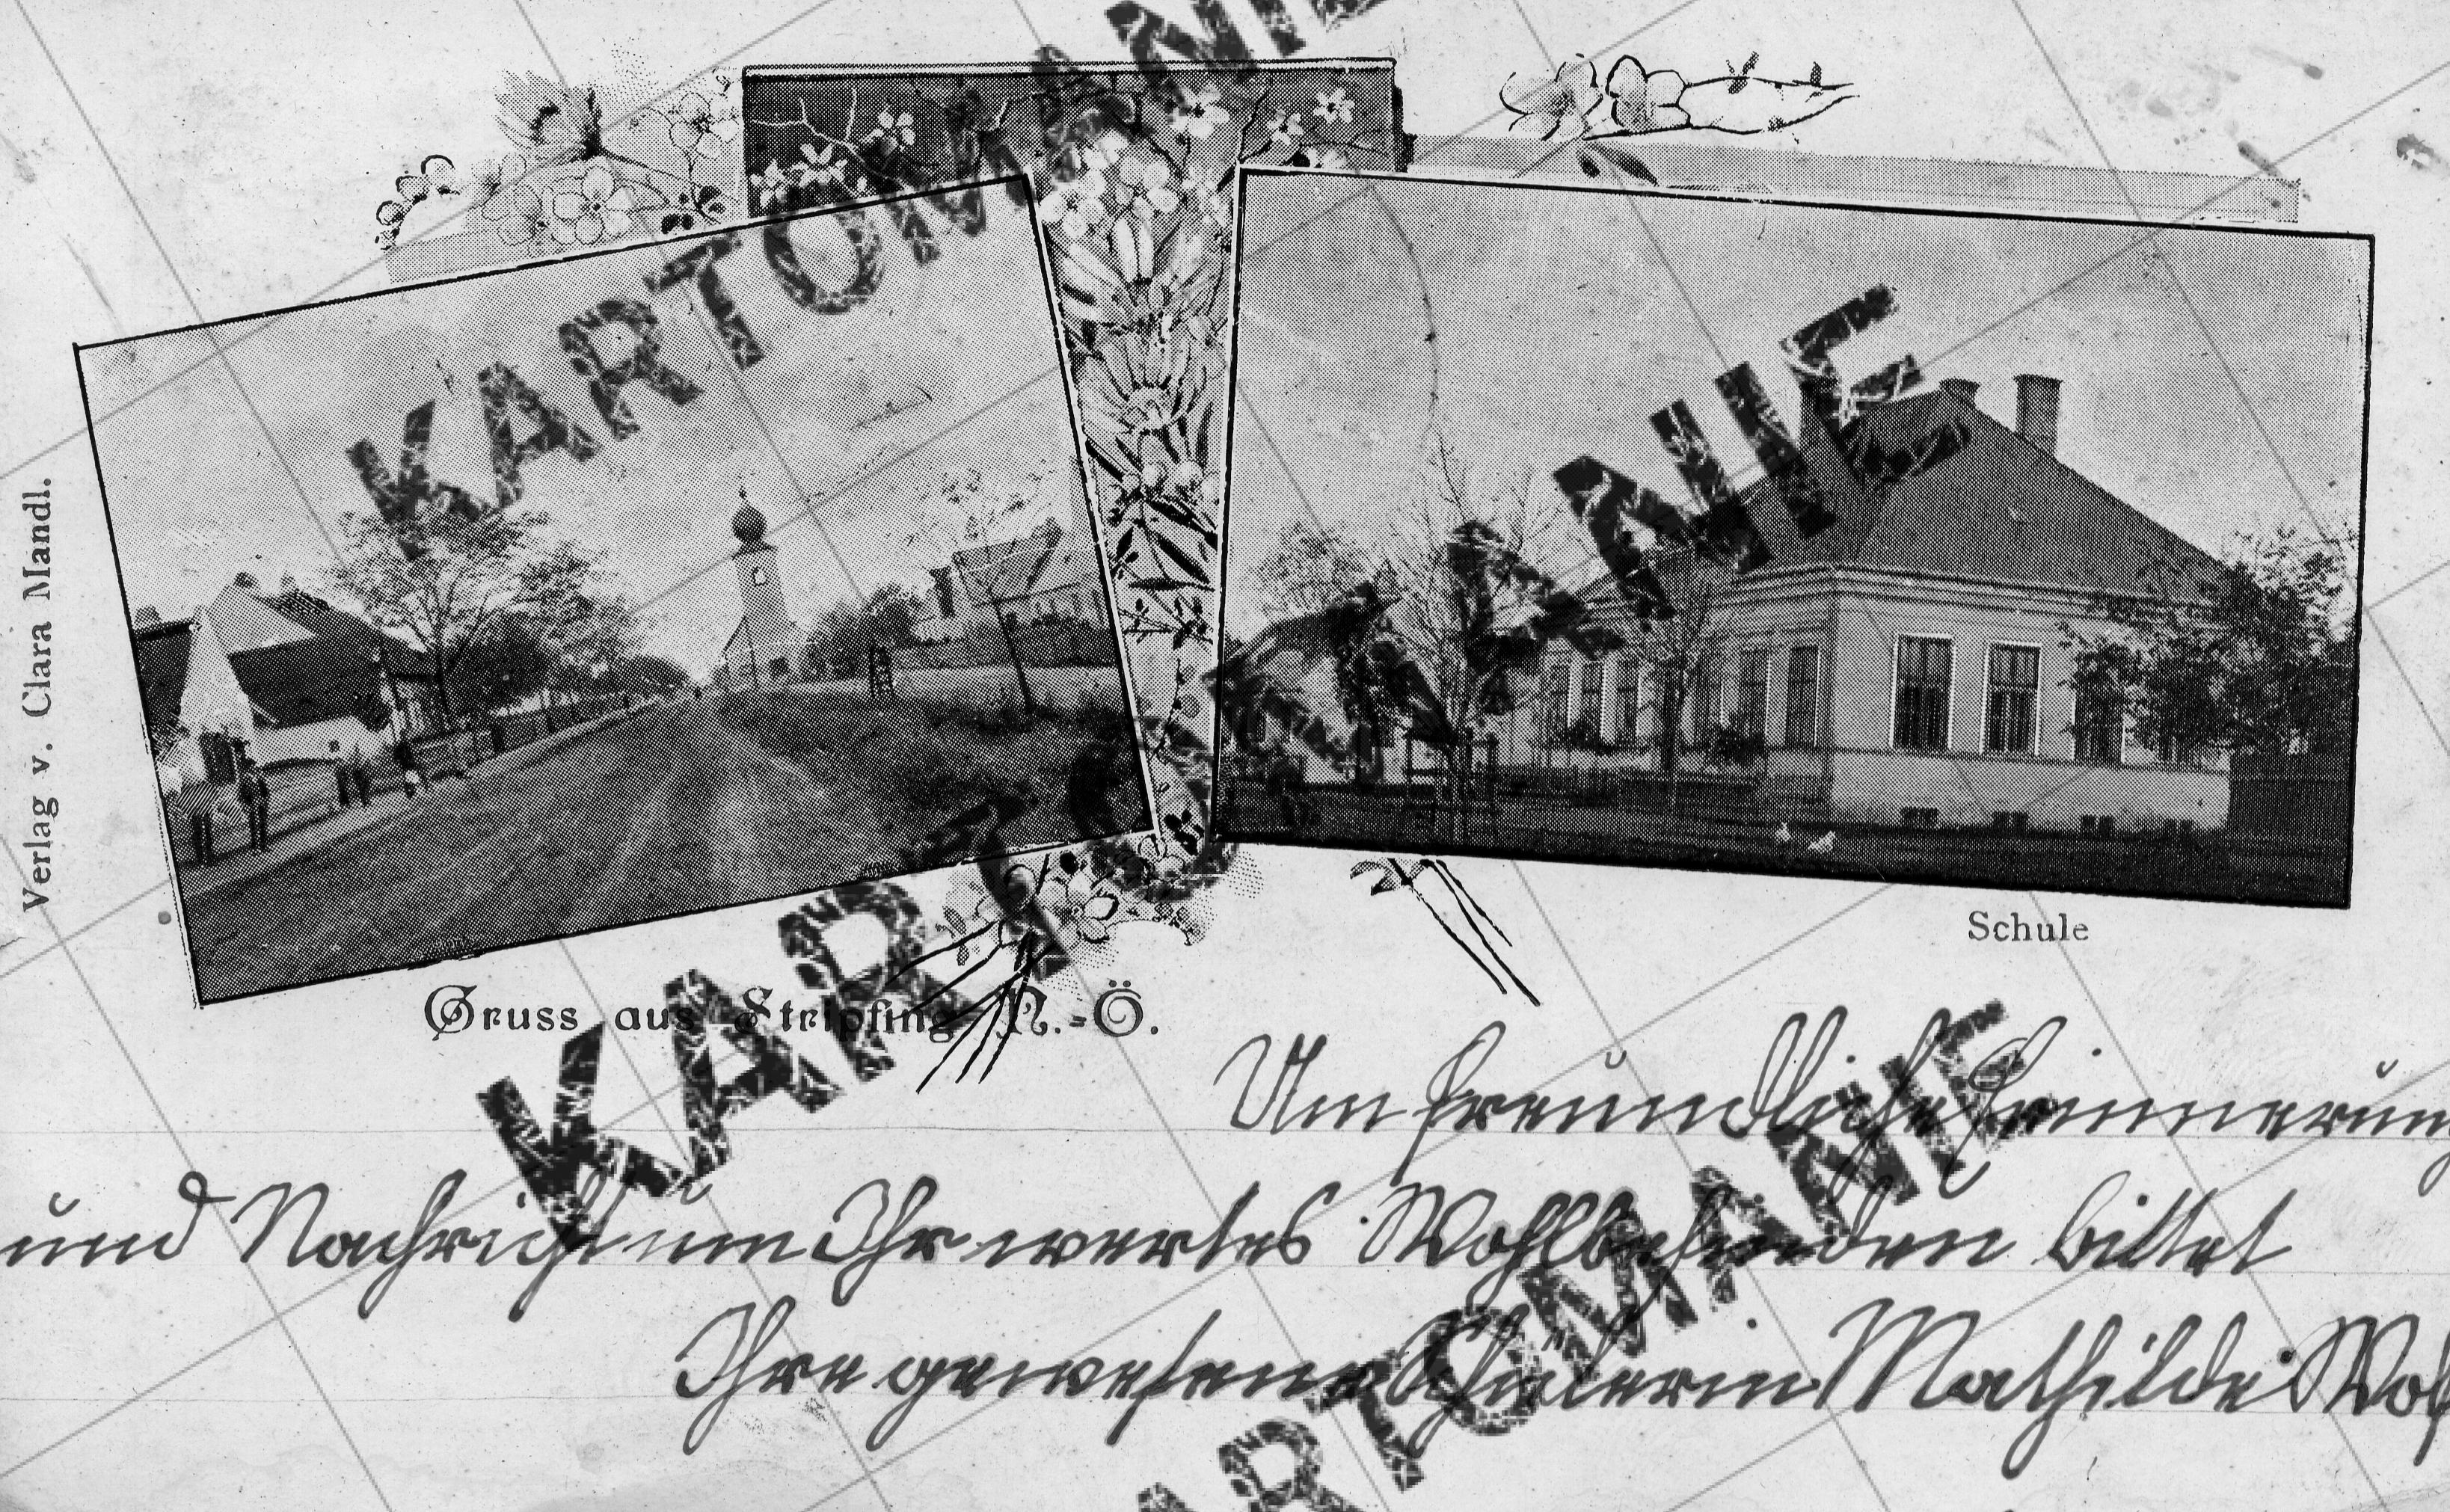 Verlag v. Clara Mandl.
Schule
Gruss aus Stripfing N.-Ö.
Um freundliche Erinnerung
und Nachricht um Ihr wertes Wohlbefinden bittet
Ihre gewesene Schülerin Mathilde
KARTOMANIE
KARTOMANIE
KARTOMANIE